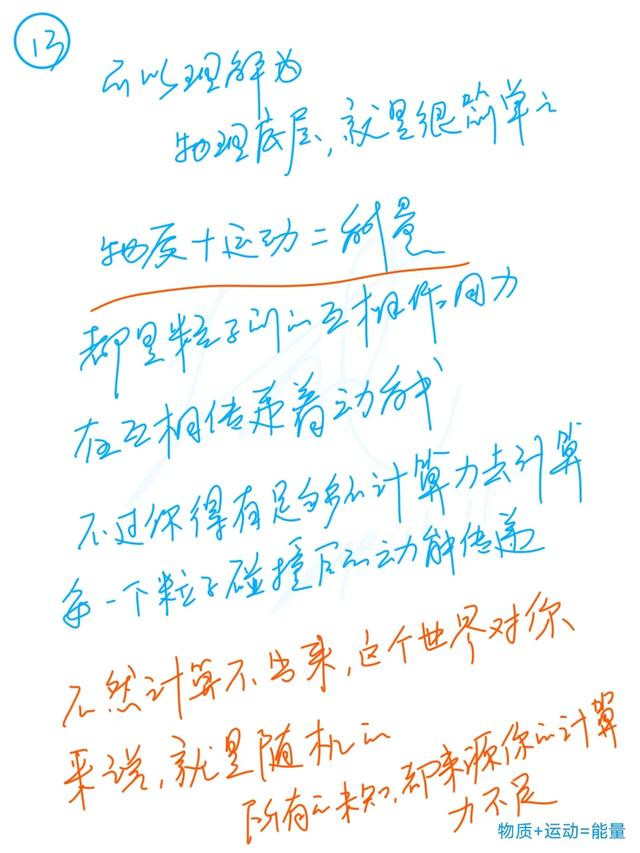 13
所以理解为
物理底层，就是很简单的
物质＋运动＝能量
都是粒子间的互相作用力
在互相传递着动能
不过你得有足够的计算力去计算
每一个粒子碰撞后的动能传递
不然计算不出来，这个世界对你
来说，就是随机的
所有的未知，都来源你的计算
力不足
物质+运动=能量